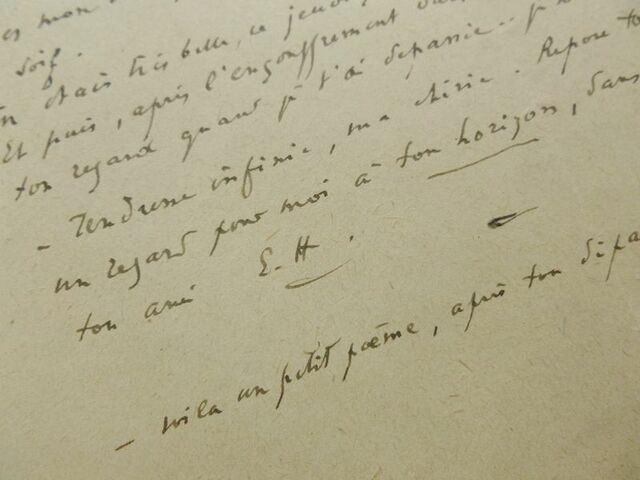 es mon
soif.
étais très belle, ce jeudi,
Et puis, après l'engouffrement dans
ton regard quand je t'ai dépassée..
- Tendresse infinie, ma chérie. Repose
un regard pour moi à ton horizon, dans
ton ami E.H.
- voila un petit poème, après ton dépa